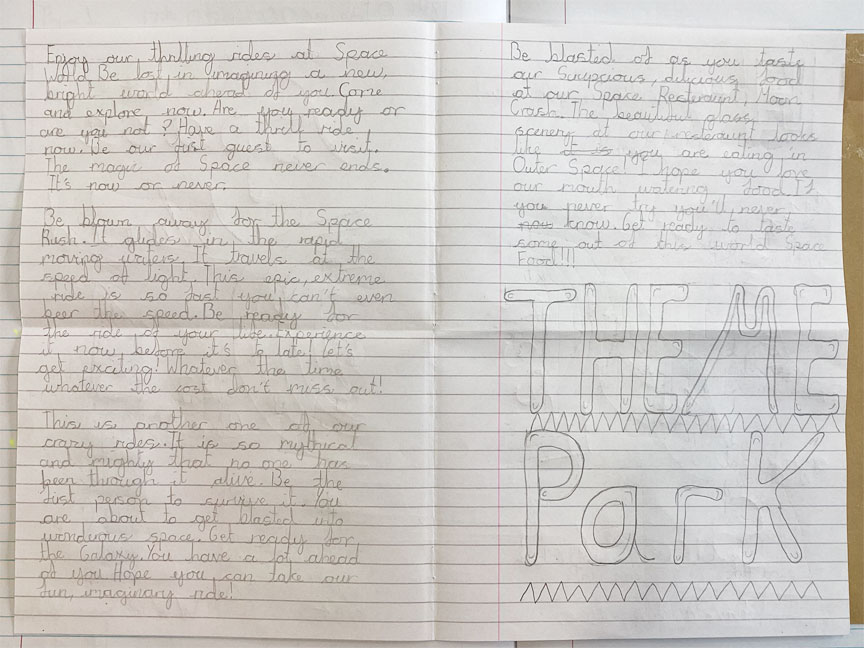 Enjoy our thrilling rides at Space
World. Be lost in imagining a new,
bright world ahead of you. Come
and explore now. Are you ready or
are you not? Have a thrill ride
now. Be our first guest to visit.
The magic of Space never ends.
It's now or never.
Be blown away for the Space
Rush. It glides in the rapid
moving It travels at the
speed of light. This epic, extreme
ride is so fast you can't even
beer the speed. Be ready for
the ride of your live. Experience
it now before it's to late! Let's
get exciting! Whatever the time
whatever the cost don't miss out!
This is another one of our
crazy rides. It is so mythical
and mighty that no one has
been through it alive. Be the
first person to survive it. You
are about to get blasted into
wonduous space. Get ready for
the Galaxy. You have a lot ahead
of you. Hope you can take our
fun, imaginary ride!
Be blasted of as you taste
our Scrupcious, dilicious food
at our Space Resteraunt, Moon
Crash. The beautiful glass
scenery at our resteraunt looks
like it is you are eating in
Outer Space. I hope you love
our mouth watering food. If
you never try you'll never
now know. Get ready to taste
some out of this world Space
Food!!!
THEME
Park